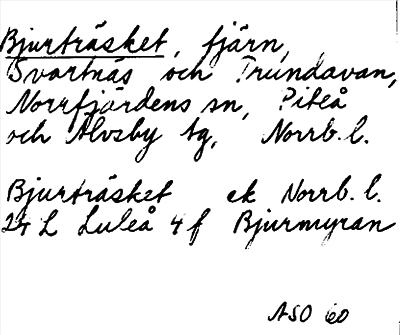 Bjurträsket, fjärn,
Svartnäs och Trundavan,
Norrfjärdens sn, Piteå
och Älvsby tg, Norrb. l.
Bjurträsket ek Norrb. l.
24 L Luleå 4 f Bjurmyran
ASO 60